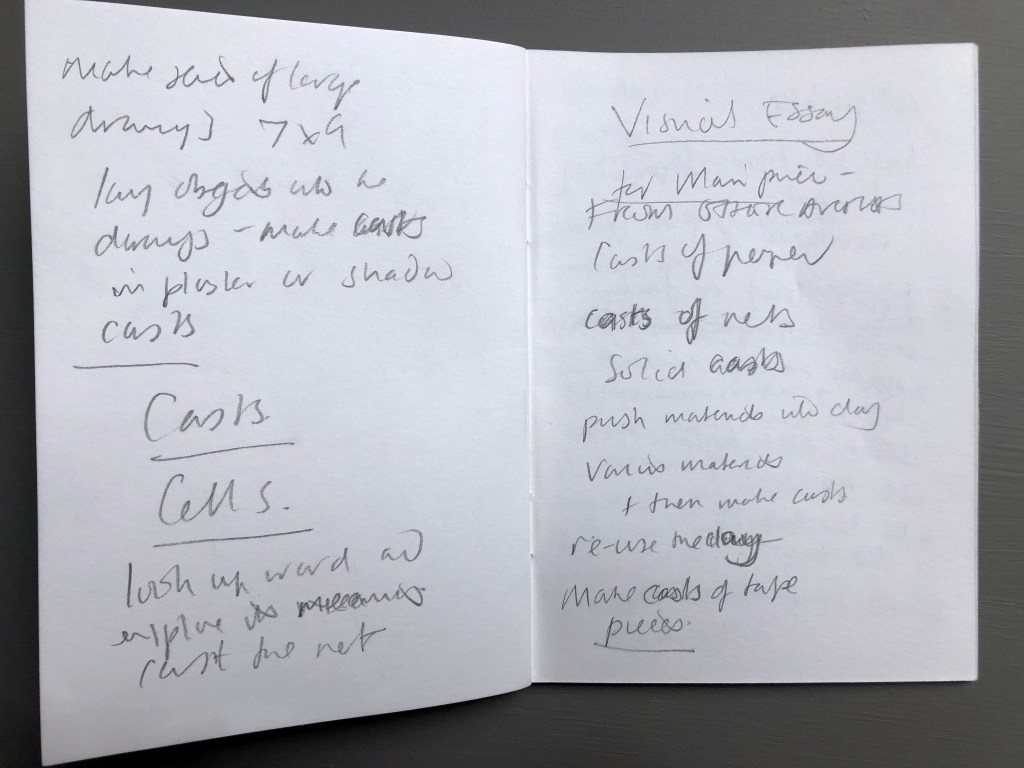 Make series of large
drawings 7x9
lay objects into the
drawings - make casts
in plaster or shadow
casts
Casts
Cells.
look up word and
explore its meanings
cast the net
Visual Essay
for Main piece -
From
Casts of paper
casts of nets
Solid casts
push materials into clay
Various materials
+ then make casts
re-use the clay
Make casts of tape
pieces.